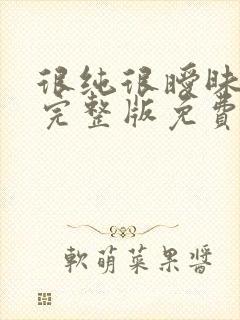 很纯很曖昧
完整版免費
軟萌菜果醬